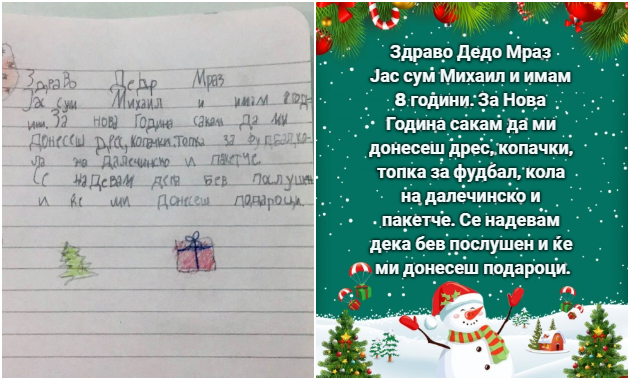 Здраво Дедо Мраз
Јас сум Михаил и имам 8 годи-
ни. За нова Година сакам да ми
донесеш дрес, копачки, топка за фудбал, ко-
ла на далечинско и пакетче.
Се надевам дека бев послушен
и ќе ми донесеш подароци.
Здраво Дедо Мраз
Јас сум Михаил и имам
8 години. За Нова
Година сакам да ми
донесеш дрес, копачки,
топка за фудбал, кола
на далечинско и
пакетче. Се надевам
дека бев послушен и ќе
ми донесеш подароци.